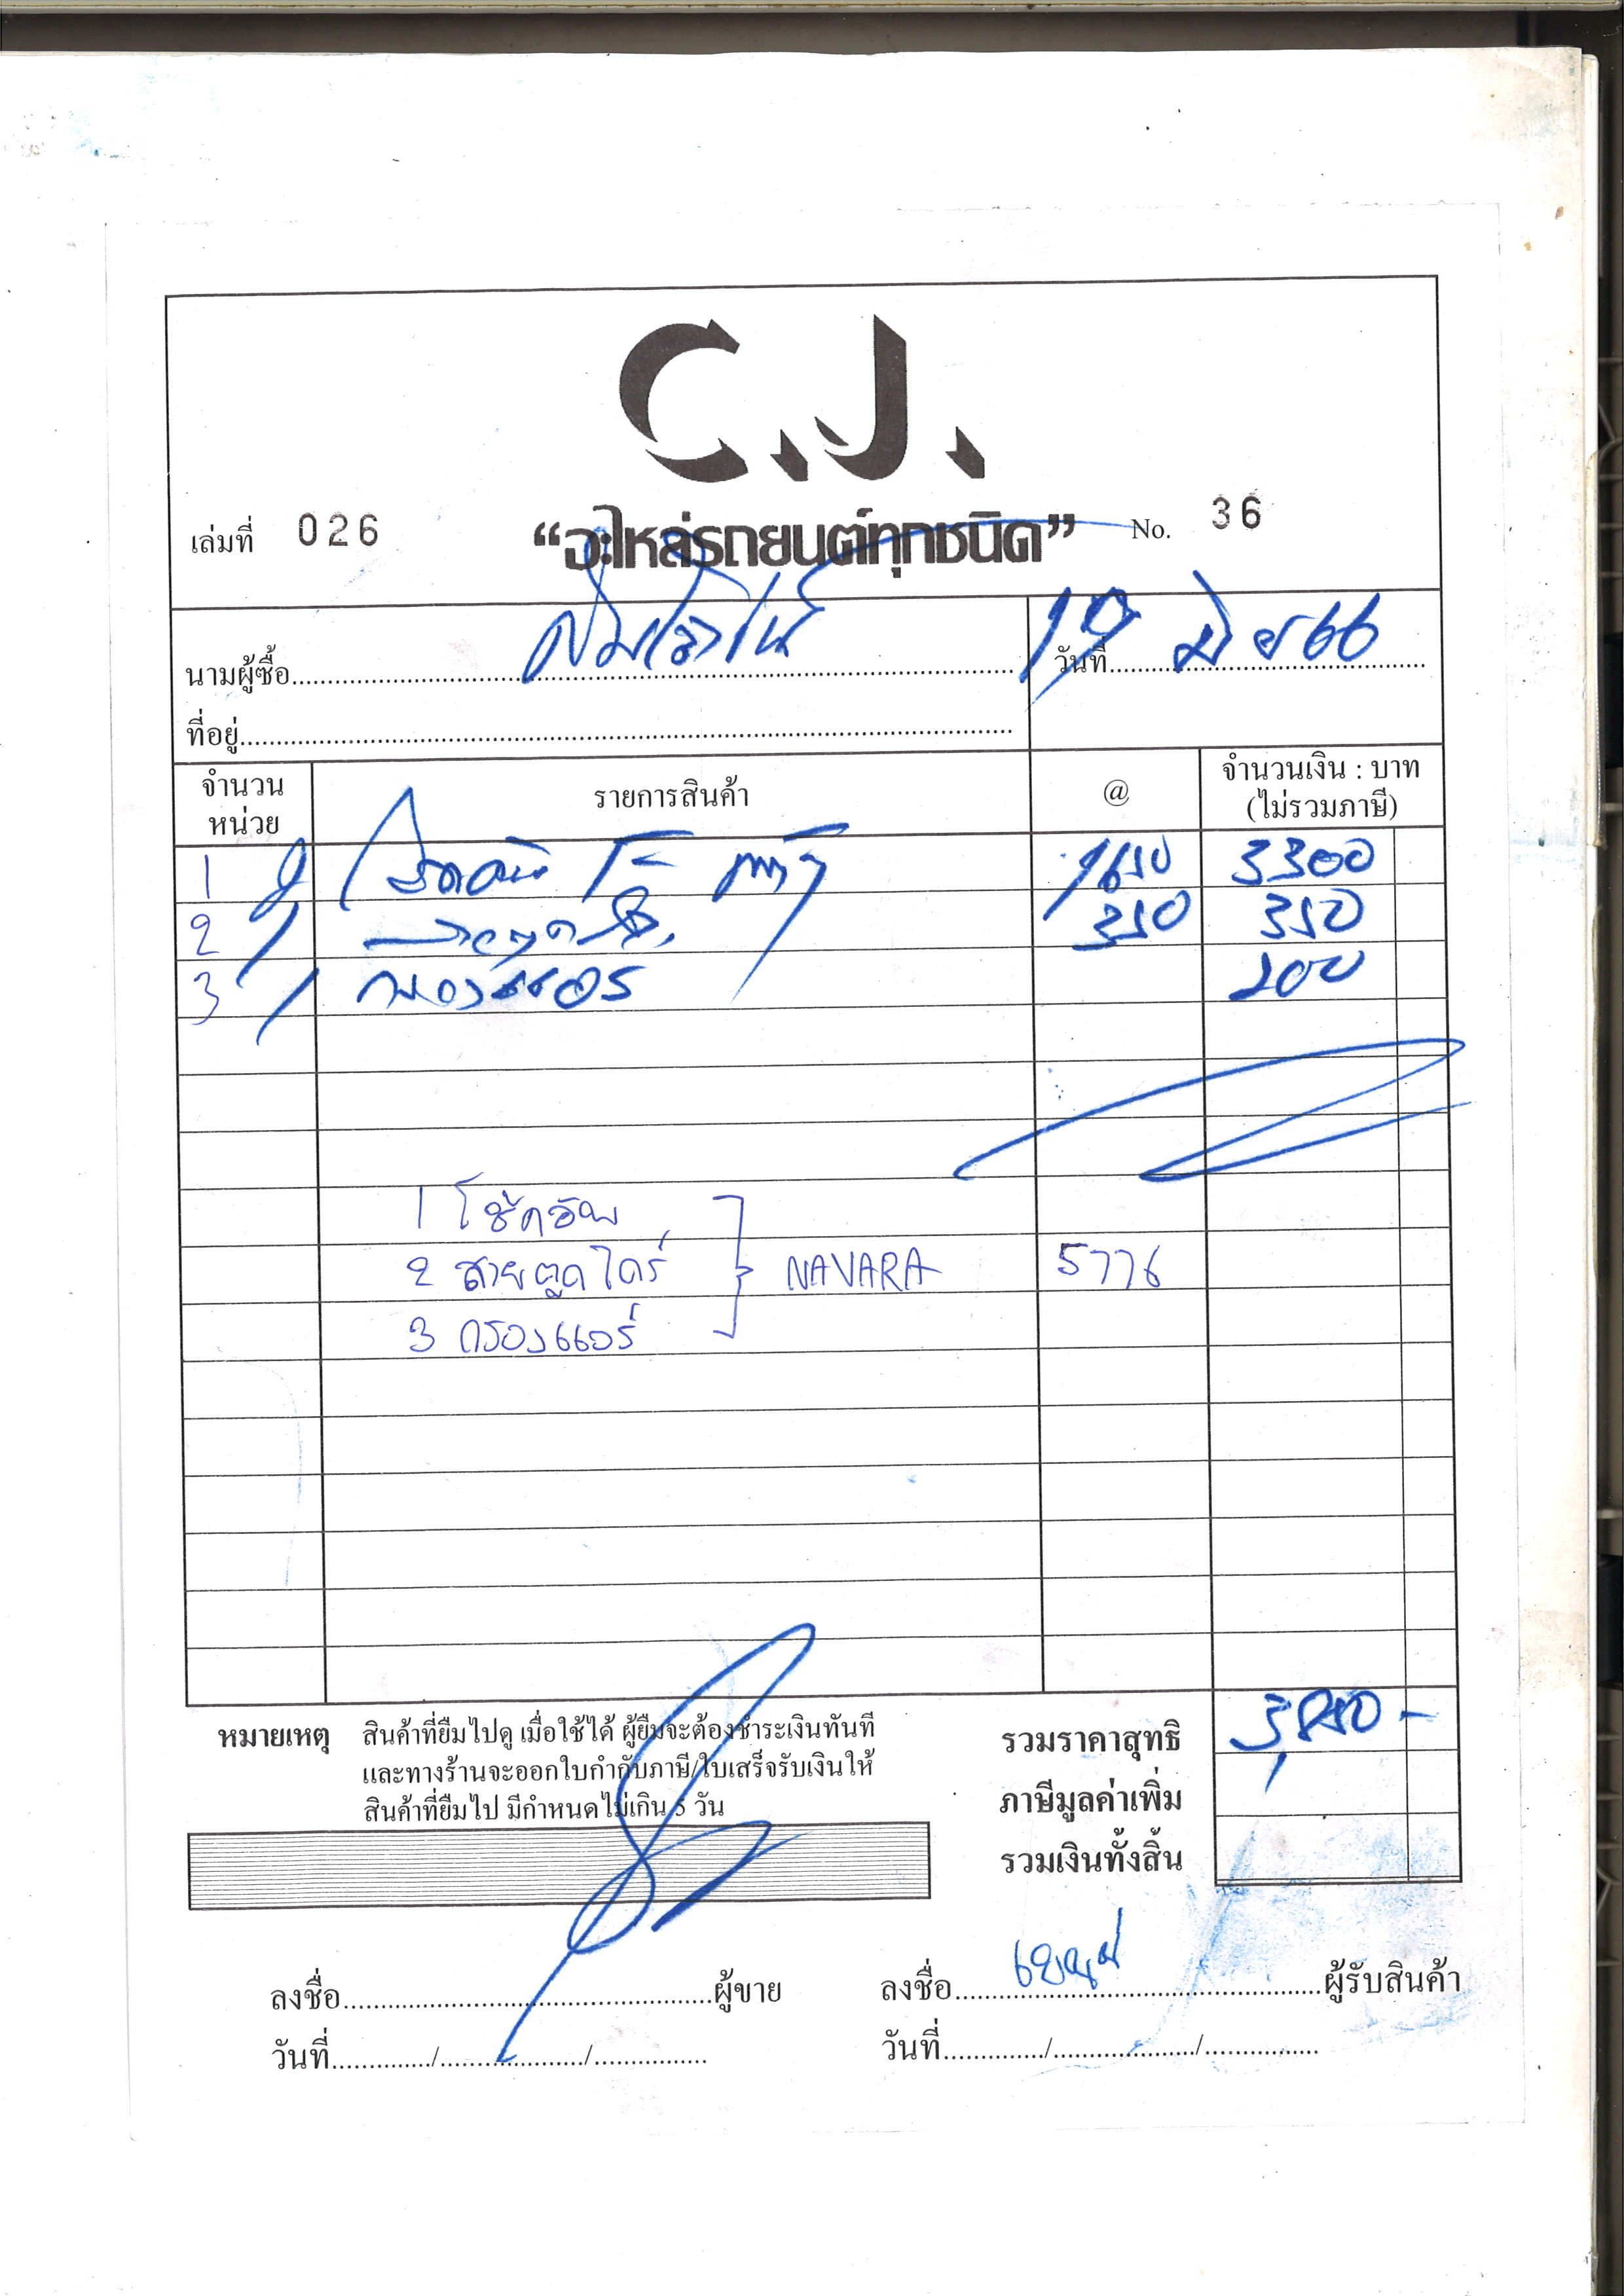 C.J.
เล่มที่ 026 “อะไหล่รถยนต์ทุกชนิด” No. 36
นามผู้ซื้อ วันที่ 19 มิย 66
ที่อยู่
จำนวน หน่วย รายการสินค้า @ จำนวนเงิน : บาท (ไม่รวมภาษี)
1 2 1650 3300
2 1 350 350
3 1 กรองแอร์ 200
1 โช้คอัพ
2 สายตูดไดร์ } NAVARA 5776
3 กรองแอร์
หมายเหตุ สินค้าที่ยืมไปดู เมื่อใช้ได้ ผู้ยืมจะต้องชำระเงินทันที
และทางร้านจะออกใบกำกับภาษี/ใบเสร็จรับเงินให้
สินค้าที่ยืมไป มีกำหนดไม่เกิน 5 วัน
รวมราคาสุทธิ 3,850 -
ภาษีมูลค่าเพิ่ม
รวมเงินทั้งสิ้น
ลงชื่อ ผู้ขาย ลงชื่อ ผู้รับสินค้า
วันที่ / / วันที่ / /